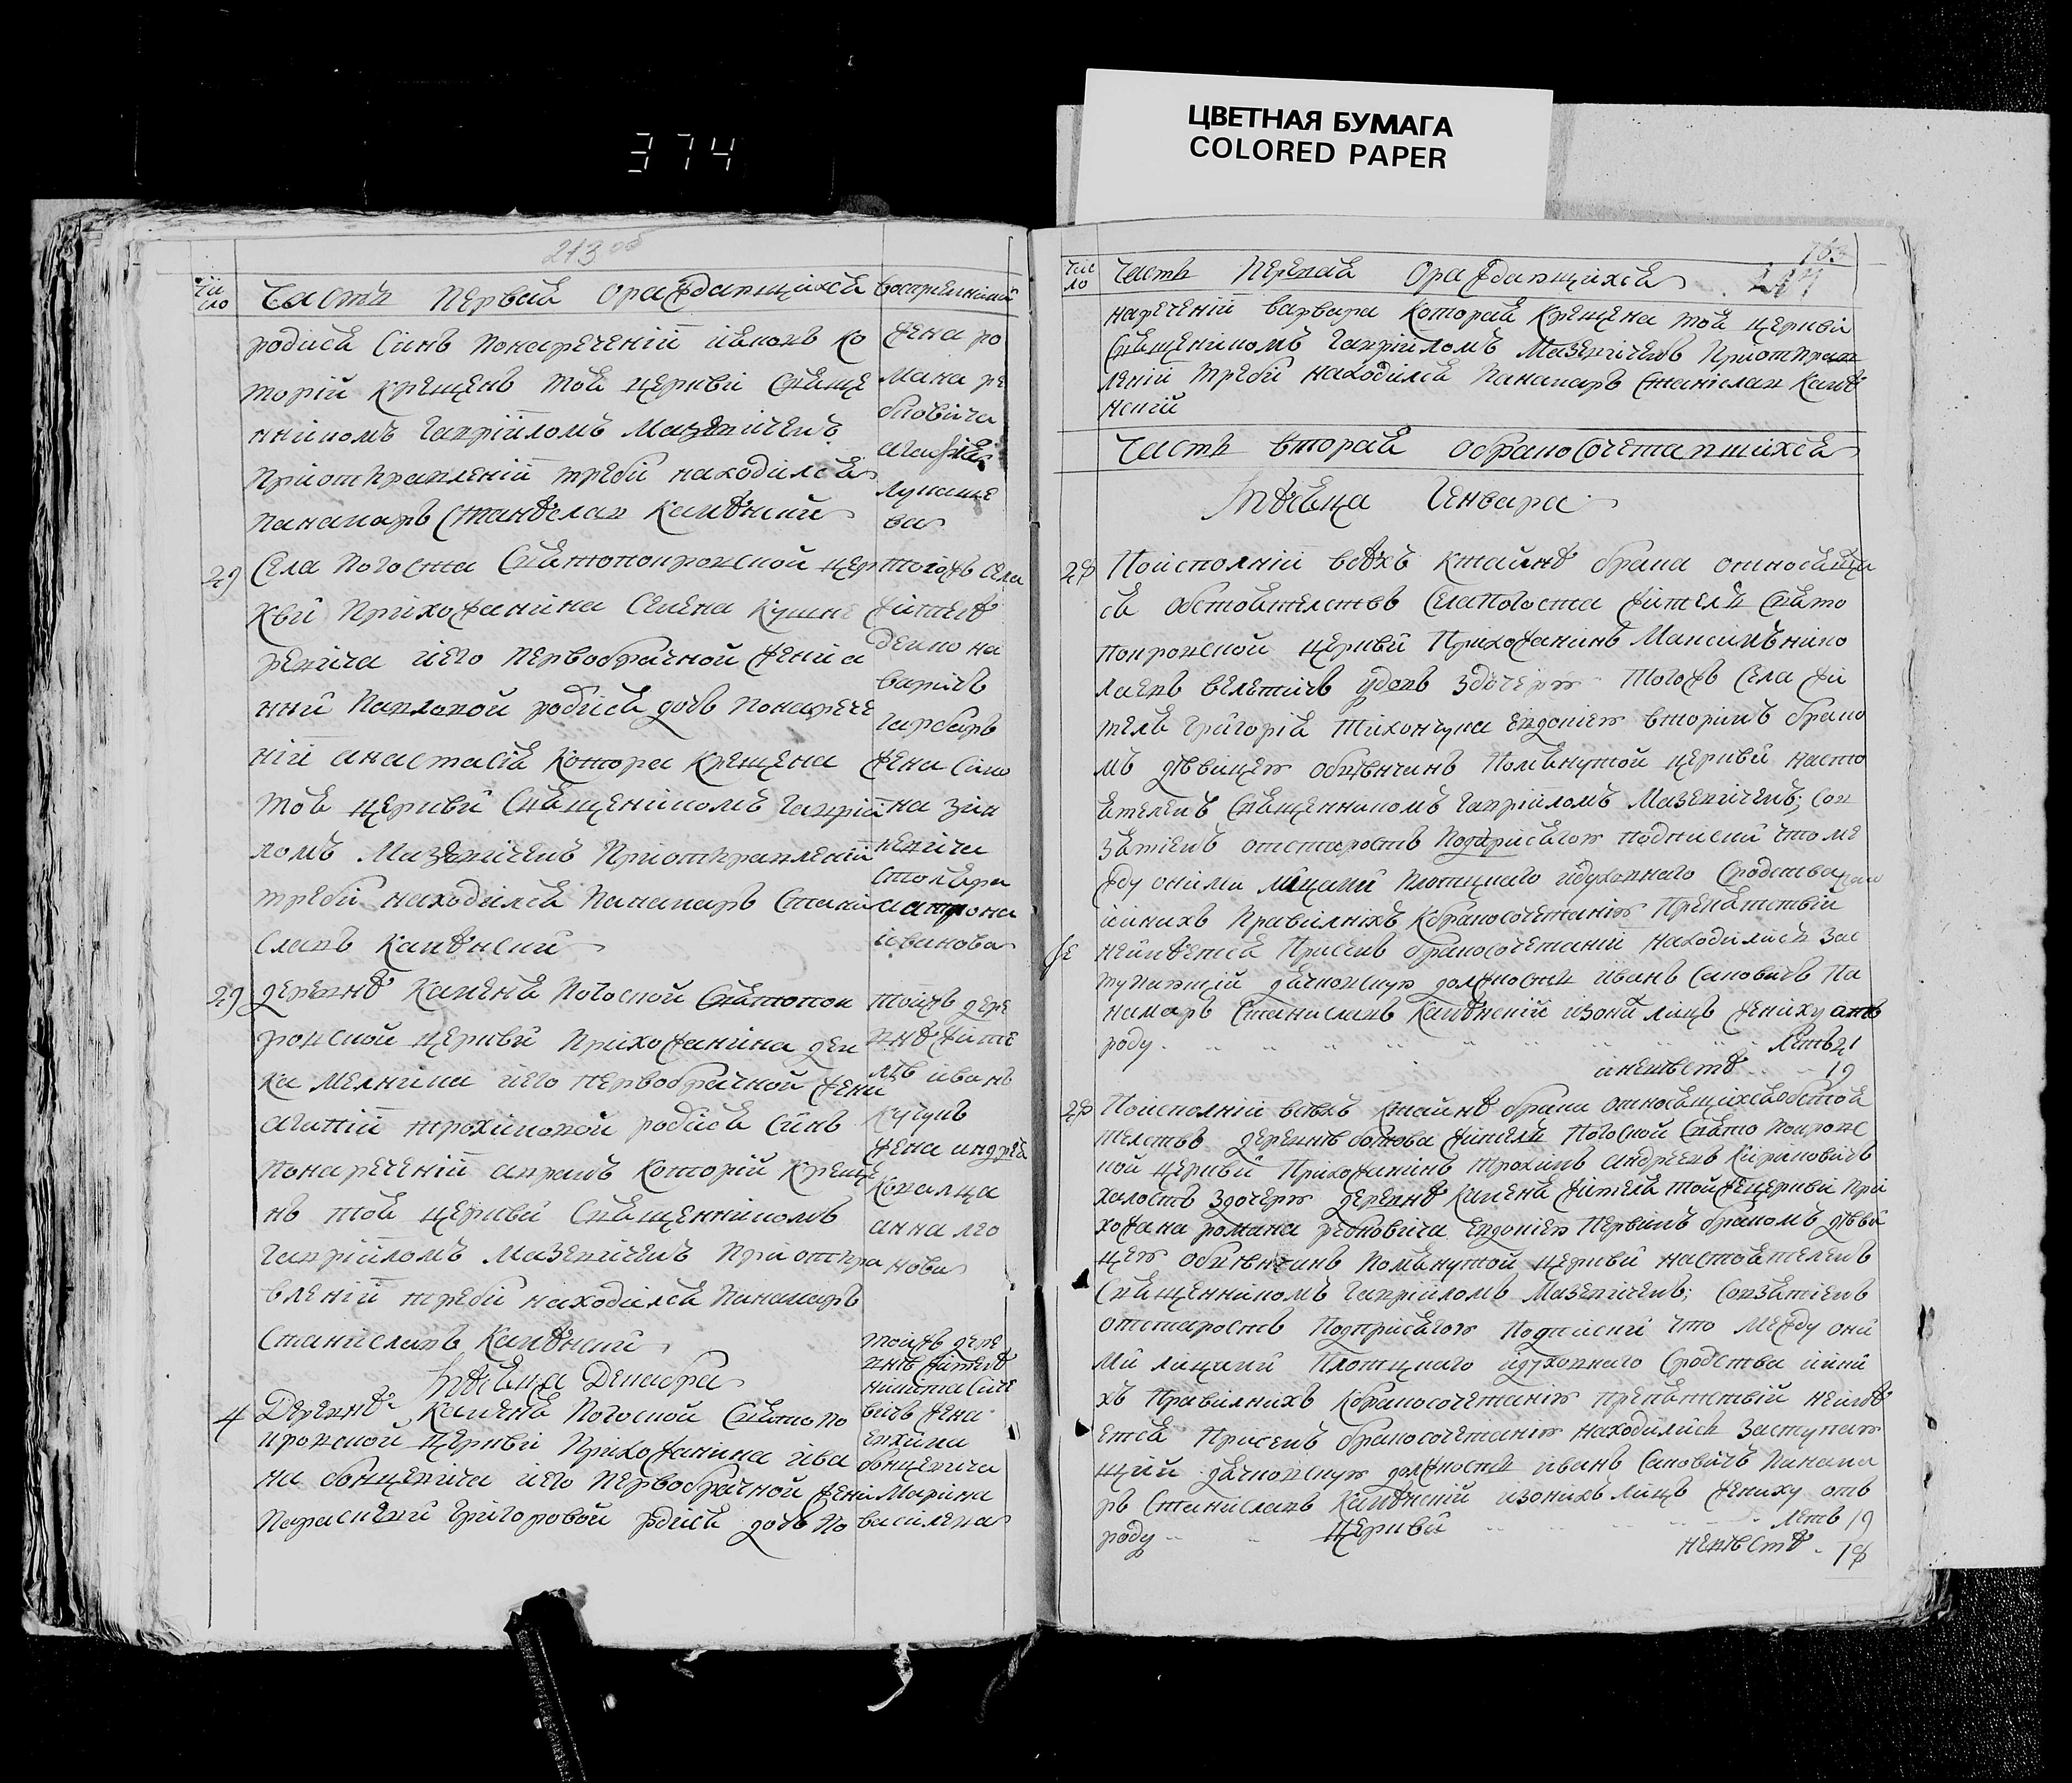 374
ЦВЕТНАЯ БУМАГА
COLORED PAPER
213 об
Чи
сло
Часть первая ораждающихся
Восприемники
родися Синъ понареченій
торій крещенъ тоя церкви Свяще
нникомъ Гавріиломъ Мазевичемъ
приотправленіи треби находился
панамарь Станѣслав Камѣнский
жена ро
мана ре
бковича
агафия
лукаше
ва
29
Села Погоста Святопокровской цер
кви прихожанина Семена
ревича иего первобрачной жени а
нни Павловой родися дочь понарече
ній анастасія котора крещена
тоя церкви Священикомъ Гавріи
ломъ Мазевичемъ приотправленіи
треби находился панамарь Стани
славъ Камѣнский
тогожъ села
жителѣ
варичъ
гарбарь
жена Симо
на зин
кевича
столяра
матрона
иванова
29
деревнѣ Каменя Погоской Святопок
ровской церкви прихожанина
ка мелника иего первобрачной жени
агапіи трохимовой родися Синъ
понареченій аврамъ которій креще
нъ тоя церкви Священникомъ
Гавріиломъ Мазевичемъ при отпра
вленіи треби находился панамарь
Станиславъ Камѣнский
тойжъ дере
внѣ жите
ль иванъ
жена андрея
ковалца
анна лео
нова
Мѣсяца Декабра
4
Деревнѣ Каменя Погоской Святопо
кровской церкви прихожанина ива
на бонцевича иего первобрачной жени
Параскеви Григоровой родися дочь по
тойжъ дере
внѣ жителѣ
никита
вичъ жена
евхима
бонцевича
Марина
василева
Чис
ло
Часть первая ораждающихся
нареченій варвара которая крещена тоя церкви
Священикомъ Гавріиломъ Мазевичемъ приотправ
леніи треби находился панамарь Станіслав Камѣ
нский
Часть вторая обракосочетавшихся
Мѣсяца Генваря
28
Поисполній всѣхъ ктайнѣ брака относящи
ся обстоятелствъ села Погоста житель Свято
покровской церкви прихожанинъ Максимъ нико
лаевъ велетичъ вдовъ здочерю тогожъ села жи
теля Григорія Тихончука Евдокіею вторимъ брако
мъ дѣвицею обвѣнчанъ помянутой церкви насто
ятелемъ Священникомъ Гавріиломъ Мазевичемъ; Сов
зятіемъ отстаростъ подприсягою подписки что ме
жду оними лицами плотцкаго идуховнаго сродства
ииннихъ правилнихъ кбракосочетанію препятствій
неимѣется присемъ бракосочетаній находилися зас
тупающій дячковскую должность иванъ Сакович па
намарь Станиславъ Камѣнский изони лицъ жениху отъ
роду летъ 21
аневѣстѣ 19
28
Поисполній всѣхъ ктайнѣ брака относящихся обстоя
телствъ деревнѣ ботова житель Погоской Свято покровс
кой церкви прихожанинъ Трохимъ андреевъ Кирановичъ
холостъ здочерю деревнѣ Каменя жителя тойжецеркви при
хожана романа ребковича Евдокіею первимъ бракомъ дѣви
цею обвѣнчанъ помянутой церкви настоятелемъ
Священникомъ Гавріиломъ Мазевичемъ; Совзятіемъ
отстаростъ подприсягою подписки что между они
ми лицами плотцкаго идуховнаго сродства иини
хъ правилнихъ кбракосочетанію препятствій неимѣ
ется присемъ бракосочетанію находилися заступаю
щий дячковскую должность иванъ Сакович панама
рь Станиславъ Камѣнский изонихъ лицъ жениху отъ
роду летъ 19
церкви невѣстѣ 18